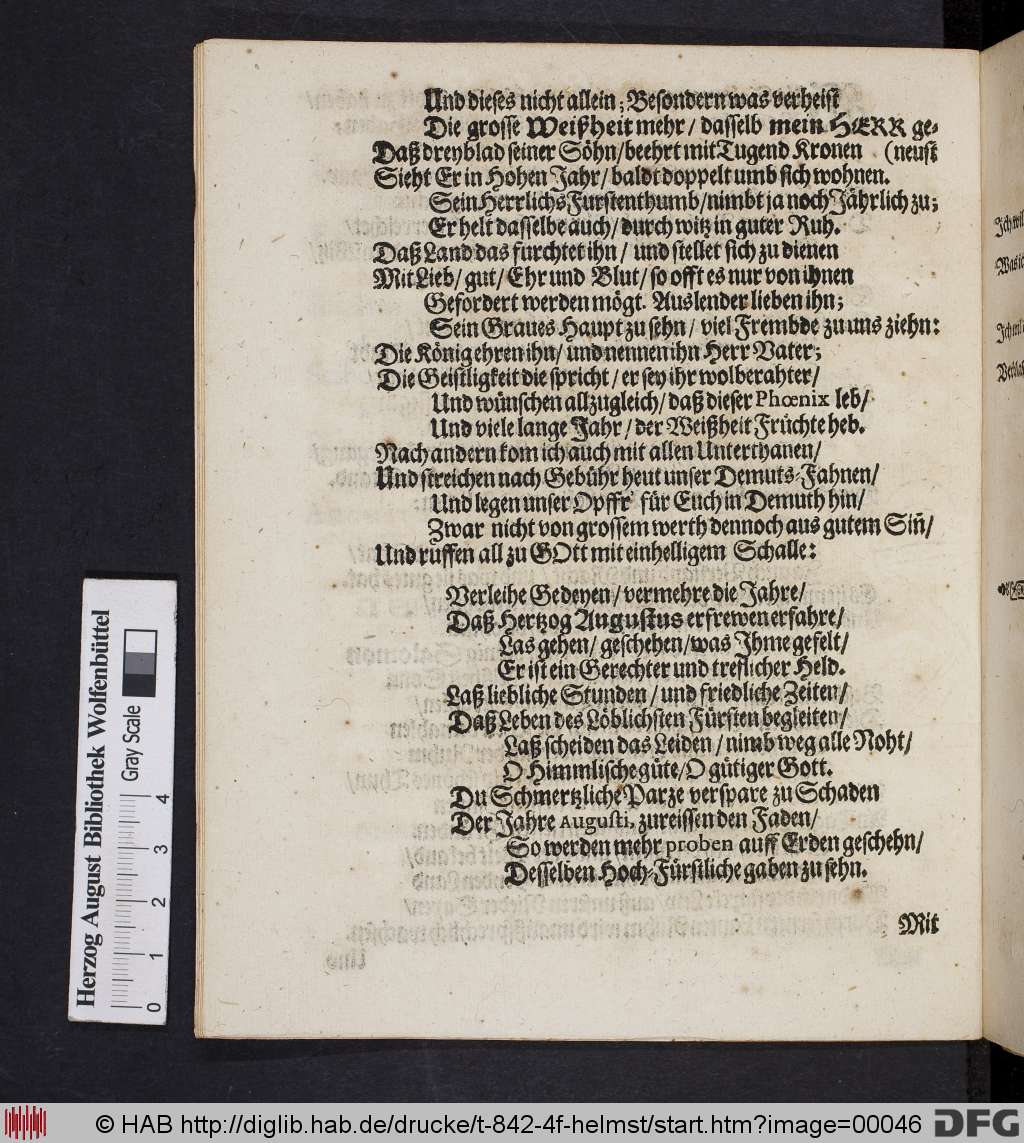 Und dieses nicht allein; Besondern was verheist
Die grosse Weißheit mehr / dasselb mein HERR ge-
Daß dreyblad seiner Söhn / beehrt mit Tugend Kronen (neust
Sieht Er in Hohen Jahr / baldt doppelt umb sich wohnen.
Sein Herrlichs Furstenthumb / nimbt ja noch Jährlich zu;
Er helt dasselbe auch / durch witz in guter Ruh.
Daß Land das furchtet ihn / und stellet sich zu dienen
Mit Lieb / gut / Ehr und Blut / so offt es nur von ihnen
Gefordert werden mögt. Auslender lieben ihn;
Sein Graues Haupt zu sehn / viel Frembde zu uns ziehn:
Die König ehren ihn / und nennen ihn Herr Vater;
Die Geistligkeit die spricht / er sey ihr wolberahter /
Und wünschen allzugleich / daß dieser Phœnix leb /
Und viele lange Jahr / der Weißheit Früchte heb.
Nach andern kom ich auch mit allen Unterthanen /
Und streichen nach Gebühr heut unser Demuts-Fahnen /
Und legen unser Opffr' für Euch in Demuth hin /
Zwar nicht von grossem werth dennoch aus gutem Siñ /
Und ruffen all zu GOtt mit einhelligem Schalle:
Verleihe Gedeyen / vermehre die Jahre /
Daß Hertzog Augustus erfrewen erfahre /
Las gehen / geschehen / was Ihme gefelt /
Er ist ein Gerechter und treflicher Held.
Laß liebliche Stunden / und friedliche Zeiten /
Daß Leben des Löblichsten Fürsten begleiten /
Laß scheiden das Leiden / nimb weg alle Noht /
O Himmlische güte / O gütiger Gott.
Du Schmertzliche Parze verspare zu Schaden
Der Jahre Augusti, zureissen den Faden /
So werden mehr proben auff Erden geschehn /
Desselben Hoch-Fürstliche gaben zu sehn.
Mit
Herzog August Bibliothek Wolfenbüttel
Gray Scale
0 1 2 3 4
© HAB http://diglib.hab.de/drucke/t-842-4f-helmst/start.htm?image=00046
DFG